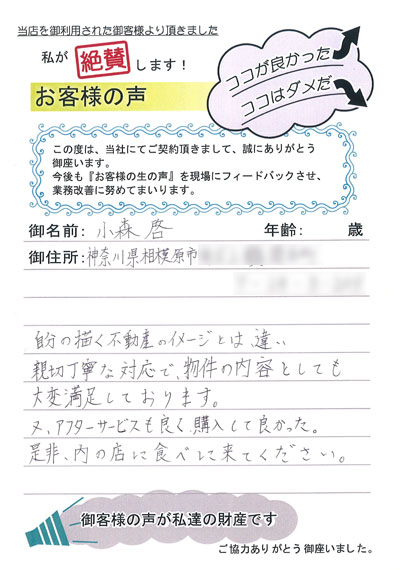 当店を御利用された御客様より頂きました
私が絶賛します！
お客様の声
ココが良かった
ココはダメだ
この度は、当社にてご契約頂きまして、誠にありがとう
御座います。
今後も『お客様の生の声』を現場にフィードバックさせ、
業務改善に努めてまいります。
御名前: 小森 啓 年齢: 歳
御住所: 神奈川県相模原市
自分の描く不動産のイメージとは、違い
親切丁寧な対応で、物件の内容としても
大変満足しております。
又、アフターサービスも良く、購入して良かった。
是非、内の店に食べに来てください。
御客様の声が私達の財産です
ご協力ありがとう御座いました。